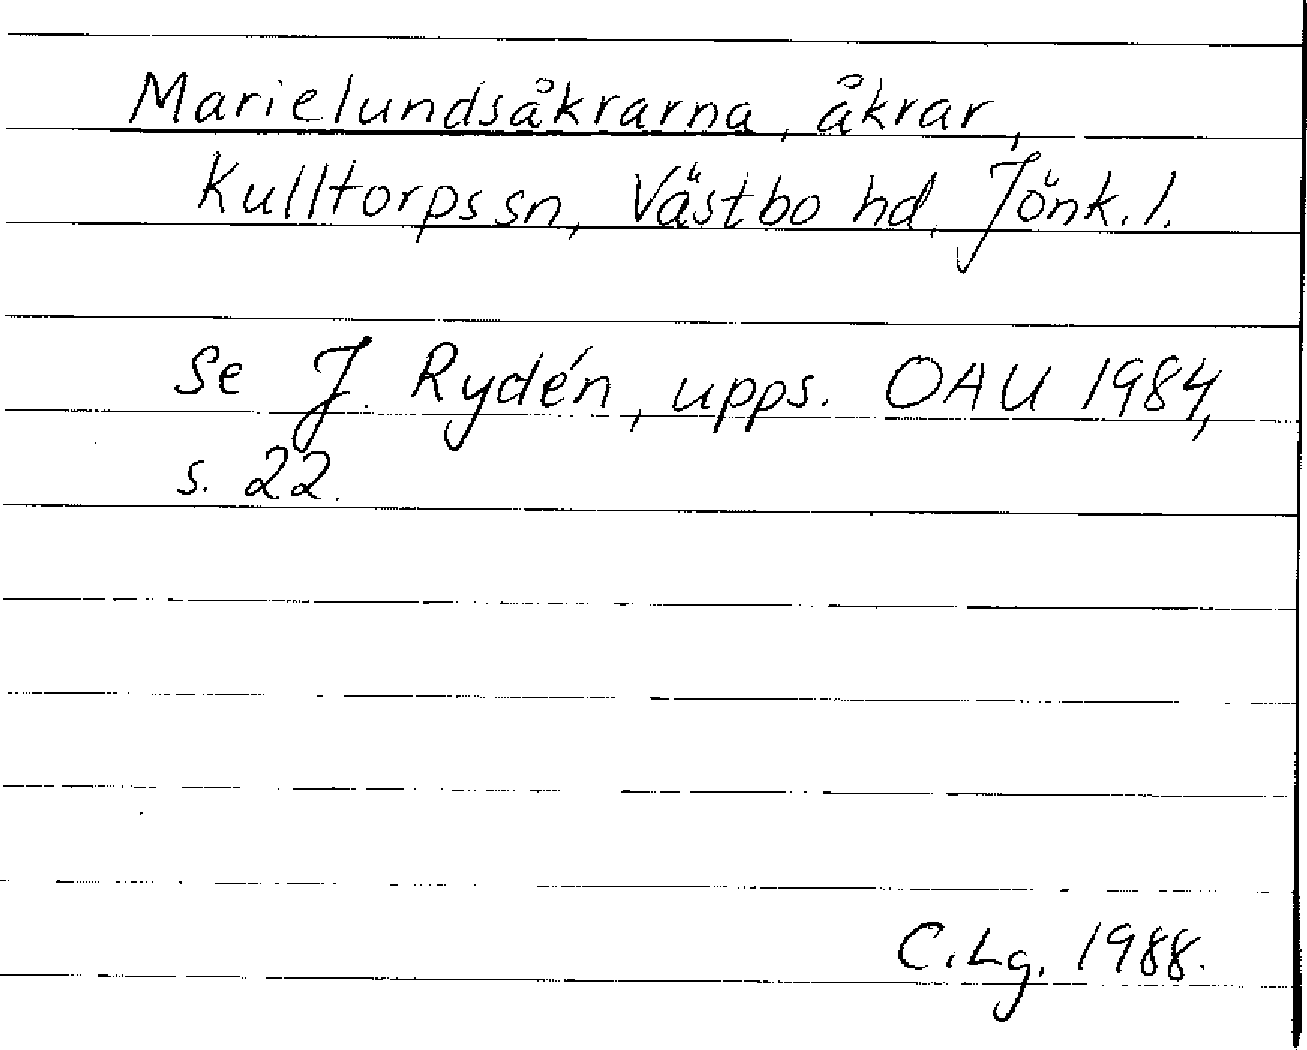 Marielundsåkrarna, åkrar,
Kulltorps sn, Västbo hd, Jönk. l.
Se J. Rydén, upps. OAU 1984,
s. 22.
C. Lg. 1988.